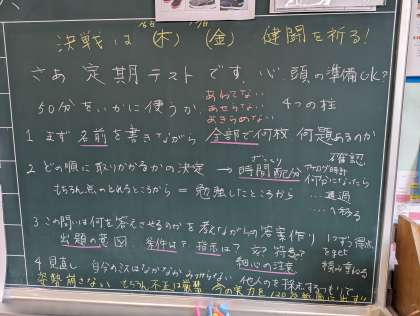 決戦は (木) (金) 健闘を祈る!
さあ 定期テストです 心、頭の準備OK?
あわてない
50分をいかに使うか あせらない 4つの柱
あきらめない
1 まず 名前を書きながら 全部で何枚 何題あるのか
確認
2 どの順に取りかかるかの決定 → 時間配分 アナログ時計
もちろん点のとれるところから = 勉強したところから 何分になったら
…通過
…へ移る
3 この問いは何を答えさせるのかを考えながらの答案作り
出題の意図 条件は? 指示は? 文? 符号? 積み重ねる
4 見直し 自分のミスはなかなかみつからない 他人のを採点するつもりで
細心の注意
姿勢崩さない もちろん不正は厳禁